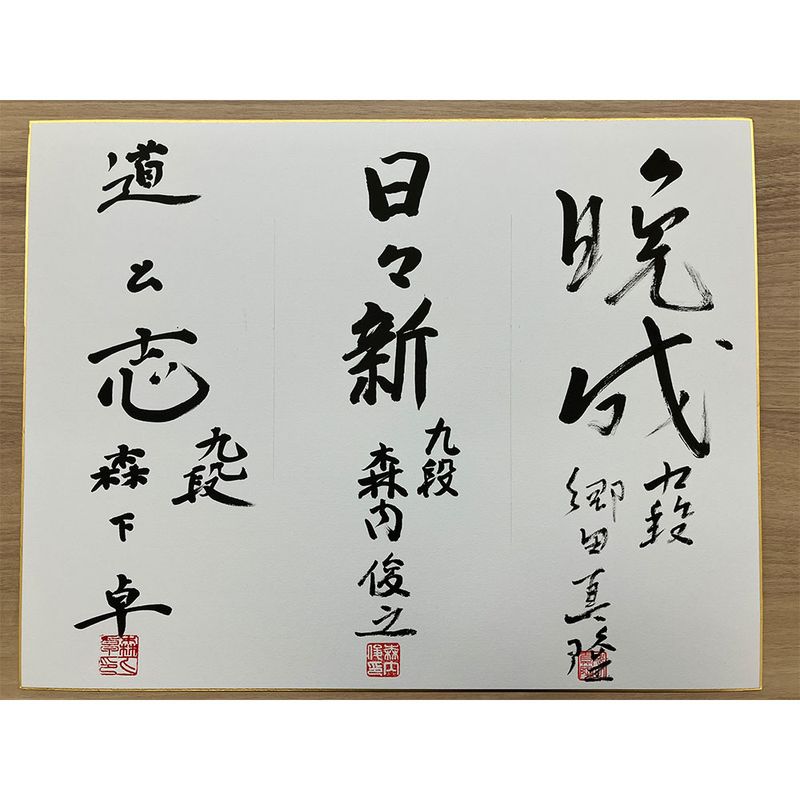 晩成
九段
郷田真隆
日々新
九段
森内俊之
道と志
九段
森下卓